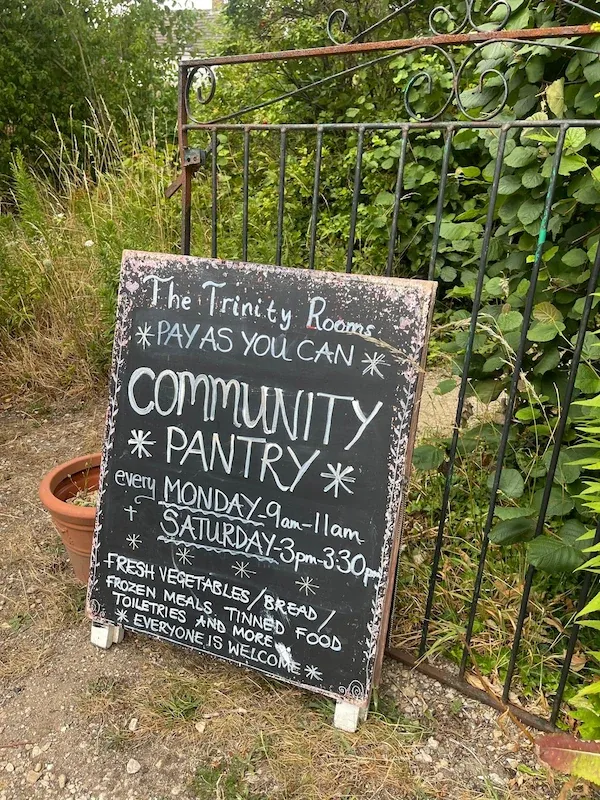 The Trinity Rooms
*PAY AS YOU CAN*
COMMUNITY
*PANTRY*
every MONDAY-9am-11am
+ SATURDAY-3pm-3:30pm
FRESH VEGETABLES/BREAD/
FROZEN MEALS, TINNED FOOD
TOILETRIES AND MORE
*EVERYONE IS WELCOME*